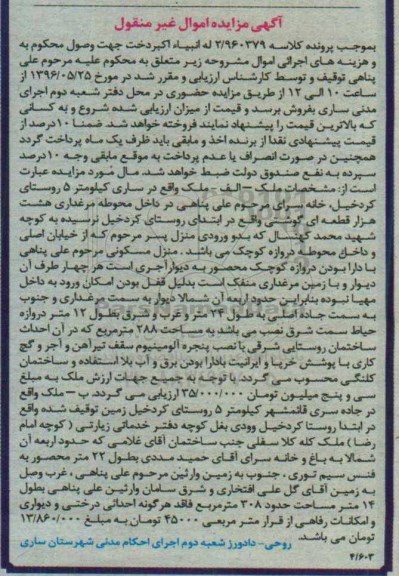 آگهی مزایده اموال غیر منقول
بموجب پرونده کلاسه ۲/۹۶۰۳۷۹ له انبیاء اکبردخت جهت وصول محکوم به
و هزینه های اجرائی اموال مشروحه زیر متعلق به محکوم علیه مرحوم علی
پناهی توقیف و توسط کارشناس ارزیابی و مقرر شد در مورخ ۱۳۹۶/۰۵/۲۵ از
ساعت ۱۰ الی ۱۲ از طریق مزایده حضوری در محل دفتر شعبه دوم اجرای
مدنی ساری بفروش برسد و قیمت از میزان ارزیابی شده شروع و به کسانی
که بالاترین قیمت را پیشنهاد نمایند فروخته خواهد شد ضمنا ۱۰درصد از
قیمت پیشنهادی نقدا از برنده اخذ و مابقی باید ظرف یک ماه پرداخت گردد
همچنین در صورت انصراف یا عدم پرداخت به موقع مابقی وجه ۱۰درصد
سپرده به نفع صندوق دولت ضبط خواهد شد. مال مورد مزایده عبارت
است از: مشخصات ملک – الف – ملک واقع در ساری کیلومتر ۵ روستای
کردخیل، خانه سرای مرحوم علی پناهی در داخل محوطه مرغداری هشت
هزار قطعه ای گوشتی واقع در ابتدای روستای کردخیل نرسیده به کوچه
شهید محمد کهنسال که بدو ورودی منزل پسر مرحوم که از خیابان اصلی
و داخل محوطه دروازه کوچک می باشد. منزل مسکونی مرحوم علی پناهی
با دارا بودن دروازه کوچک محصور به دیوار آجری است هر چهار طرف آن
دیوار و با زمین مرغداری منفک است بدلیل قفل بودن امکان ورود به داخل
مهیا نبوده بنابراین حدود اربعه آن شمالا دیوار به سمت مرغداری و جنوب
به سمت جاده اصلی به طول ۲۴ متر و غربا و شرق بطول ۱۲ متر دروازه
حیاط سمت شرق نصب می باشد به مساحت ۲۸۸ مترمربع که در آن احداث
ساختمان روستایی شرقی با نصب پنجره آلومینیوم سقف تیرآهن و آجر و گچ
کاری با پوشش خرپا و ایرانیت بادارا بودن برق و آب بلا استفاده و ساختمان
کلنگی محسوب می گردد. با توجه به جمیع جهات ارزش ملک به مبلغ
سی و پنج میلیون تومان ۳۵/۰۰۰/۰۰۰ ارزیابی می گردد. ب – ملک واقع
در جاده سری قائمشهر کیلومتر ۵ روستای کردخیل زمین توقیف شده واقع
در ابتدا روستا کردخیل وودی بغل کوچه دفتر خدماتی زیارتی ( کوچه امام
رضا ) ملک کله کلا سفلی جنب ساختمان آقای غلامی که حدود اربعه آن
شمالا به باغ و خانه سرای آقای حمید مددی بطول ۲۲ متر محصور به
فنس سیم توری ، جنوب به زمین وارثین مرحوم علی پناهی ، غرب وصل
به زمین آقای گل علی افتخاری و شرق سامان وارثین علی پناهی بطول
۱۴ متر مساحت حدود ۳۰۸ مترمربع فاقد هرگونه احداثی درختی و دیواری
و امکانات رفاهی از قرار متر مربعی ۴۵۰۰۰ تومان به مبلغ ۱۳/۸۶۰/۰۰۰
تومان می باشد.
روحی – دادورز شعبه دوم اجرای احکام مدنی شهرستان ساری
۴/۶۰۳